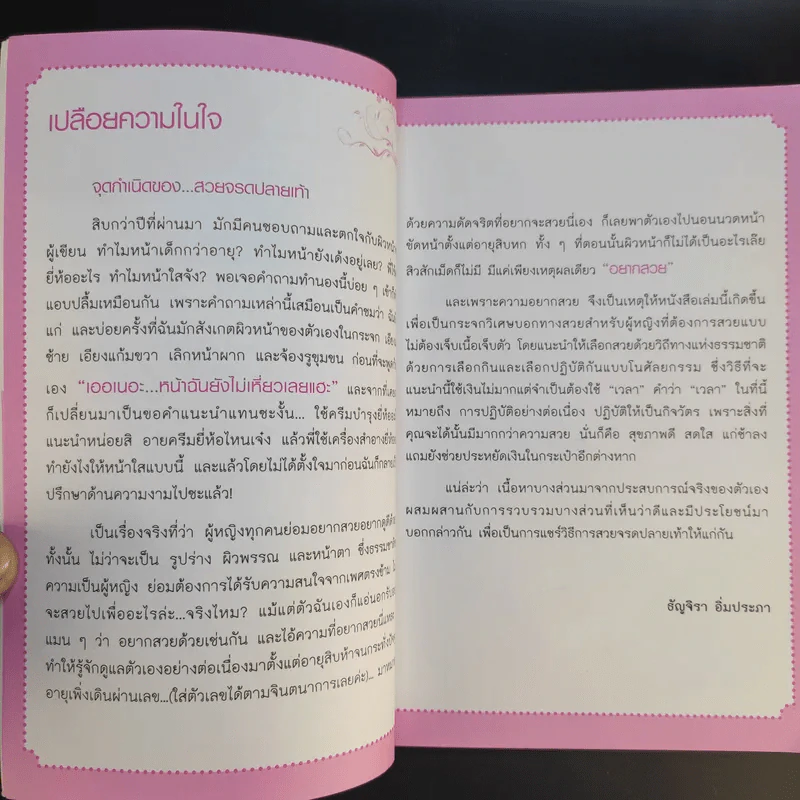 เปลือยความในใจ
จุดกำเนิดของ...สวยจรดปลายเท้า
สิบกว่าปีที่ผ่านมา มักมีคนชอบถามและตกใจกับผิวหน้า
ผู้เขียน ทำไมหน้าเด็กกว่าอายุ? ทำไมหน้ายังเด้งอยู่เลย?
ยี่ห้ออะไร ทำไมหน้าใสจัง? พอเจอคำถามทำนองนี้บ่อย ๆ
แอบปลื้มเหมือนกัน เพราะคำถามเหล่านี้เสมือนเป็นคำชมว่า
แก่ และบ่อยครั้งที่ฉันมักสังเกตผิวหน้าของตัวเองในกระจก
ซ้าย เอียงแก้มขวา เลิกหน้าผาก และจ้องรูขุมขน ก่อนที่จะ
เอง "เออเนอะ...หน้าฉันยังไม่เหี่ยวเลยแฮะ" และจากที่
ก็เปลี่ยนมาเป็นขอคำแนะนำแทนซะงั้น... ใช้ครีมบำรุงยี่ห้อ
แนะนำหน่อยสิ อายครีมยี่ห้อไหนเจ๋ง แล้วพี่ใช้เครื่องสำอางยี่ห้อ
ทำยังไงให้หน้าใสแบบนี้ และแล้วโดยไม่ได้ตั้งใจมาก่อนฉันก็
ปรึกษาด้านความงามไปซะแล้ว!
เป็นเรื่องจริงที่ว่า ผู้หญิงทุกคนย่อมอยากสวยอยากดูดี
ทั้งนั้น ไม่ว่าจะเป็น รูปร่าง ผิวพรรณ และหน้าตา ซึ่งธรรมชาติ
ความเป็นผู้หญิง ย่อมต้องการได้รับความสนใจจากเพศตรงข้าม
จะสวยไปเพื่ออะไรล่ะ...จริงไหม? แม้แต่ตัวฉันเองก็แอ่นอกรับ
แมน ๆ ว่า อยากสวยด้วยเช่นกัน และไอ้ความที่อยากสวยนี่แหละ
ทำให้รู้จักดูแลตัวเองอย่างต่อเนื่องมาตั้งแต่อายุสิบห้าจนกระทั่ง
อายุเพิ่งเดินผ่านเลข...(ใส่ตัวเลขได้ตามจินตนาการเลยค่ะ)...
ด้วยความดัดจริตที่อยากจะสวยนี่เอง ก็เลยพาตัวเองไปนอนนวดหน้า
ขัดหน้าตั้งแต่อายุสิบหก ทั้ง ๆ ที่ตอนนั้นผิวหน้าก็ไม่ได้เป็นอะไรเล้ย
สิวสักเม็ดก็ไม่มี มีแค่เพียงเหตุผลเดียว "อยากสวย"
และเพราะความอยากสวย จึงเป็นเหตุให้หนังสือเล่มนี้เกิดขึ้น
เพื่อเป็นกระจกวิเศษบอกทางสวยสำหรับผู้หญิงที่ต้องการสวยแบบ
ไม่ต้องเจ็บเนื้อเจ็บตัว โดยแนะนำให้เลือกสวยด้วยวิถีทางแห่งธรรมชาติ
ด้วยการเลือกกินและเลือกปฏิบัติกันแบบโนศัลยกรรม ซึ่งวิธีที่จะ
แนะนำนี้ใช้เงินไม่มากแต่จำเป็นต้องใช้ "เวลา" คำว่า "เวลา" ในที่นี้
หมายถึง การปฏิบัติอย่างต่อเนื่อง ปฏิบัติให้เป็นกิจวัตร เพราะสิ่งที่
คุณจะได้นั้นมีมากกว่าความสวย นั่นก็คือ สุขภาพดี สดใส แก่ช้าลง
แถมยังช่วยประหยัดเงินในกระเป๋าอีกต่างหาก
แน่ล่ะว่า เนื้อหาบางส่วนมาจากประสบการณ์จริงของตัวเอง
ผสมผสานกับการรวบรวมบางส่วนที่เห็นว่าดีและมีประโยชน์มา
บอกกล่าวกัน เพื่อเป็นการแชร์วิธีการสวยจรดปลายเท้าให้แก่กัน
ธัญจิรา อิ่มประภา